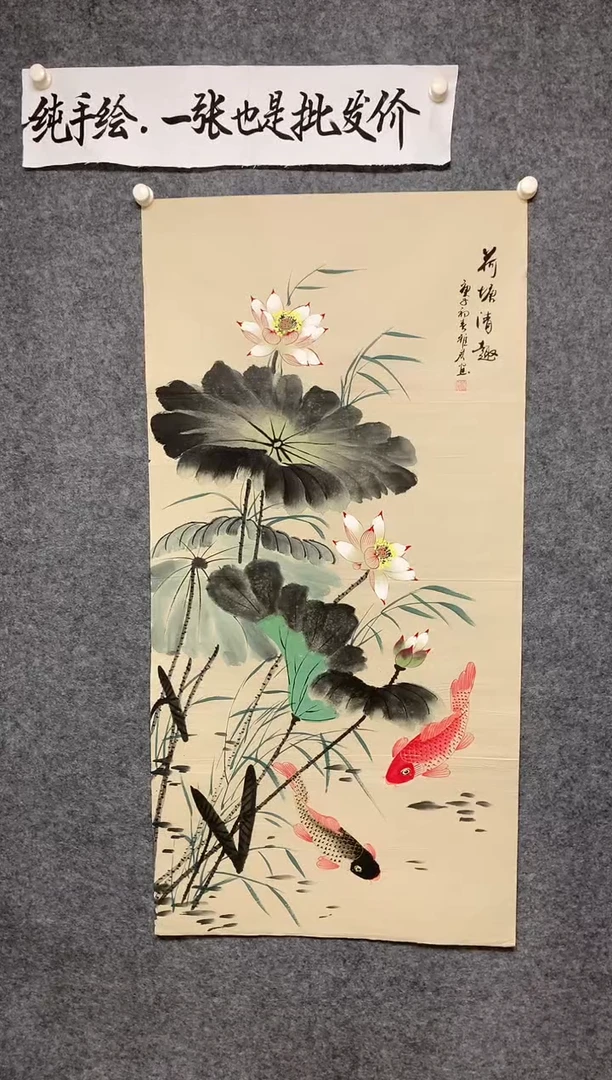 纯手绘.一张也是批发价
荷塘清趣
庚子初春雅君画